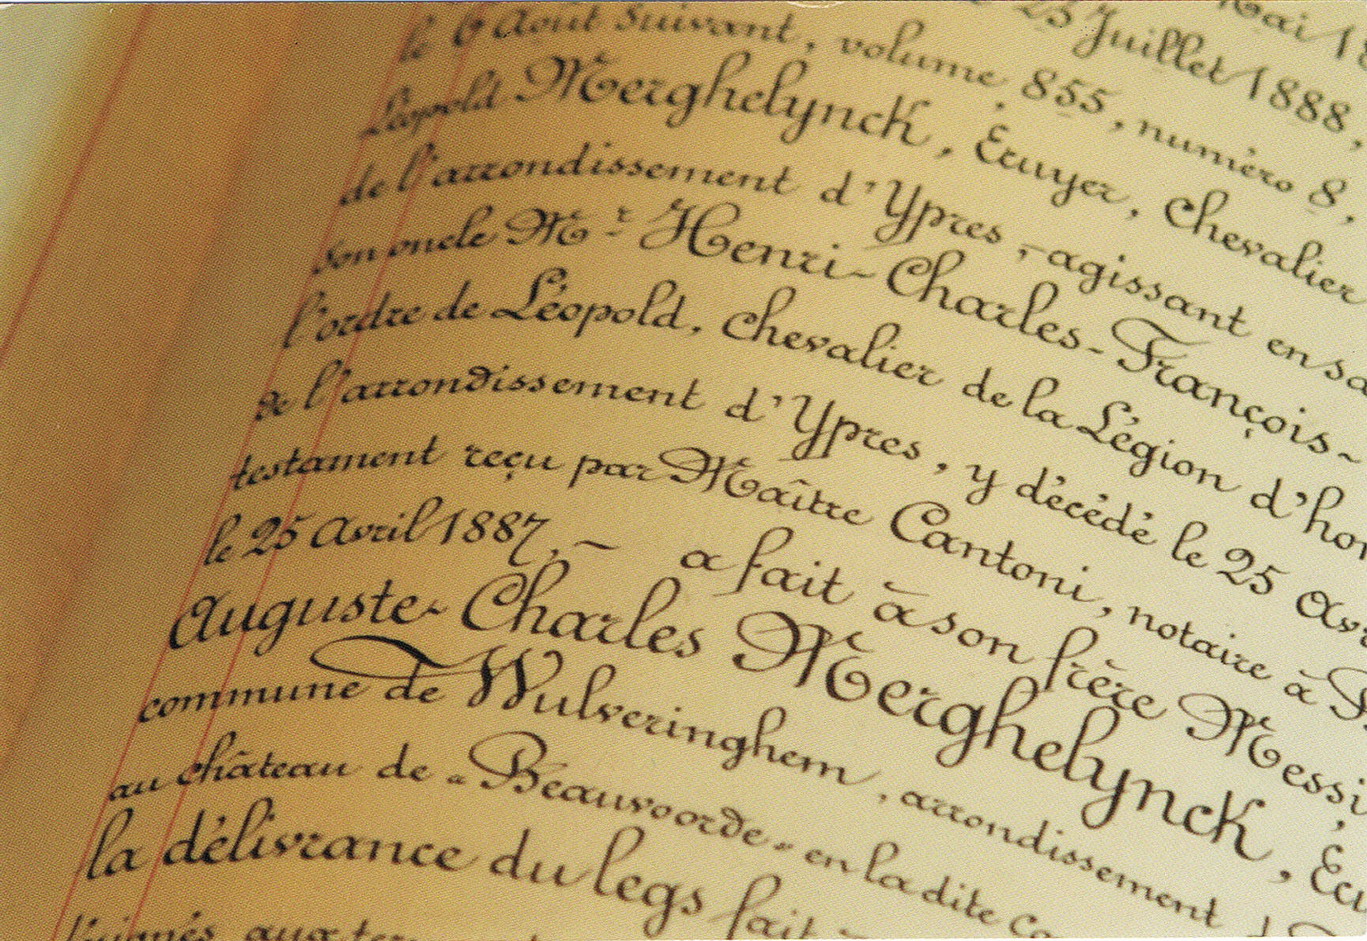 Mai 18
25 Juillet 1888,
le 6 Août suivant, volume 855, numéro 8,
Léopold Merghelynck, Ecuyer, Chevalier
de l'arrondissement d'Ypres, -agissant en sa
son oncle Mr Henri-Charles-François-
l'ordre de Léopold, chevalier de la Légion d'hon
de l'arrondissement d'Ypres, y décédé le 25 Av
testament reçu par Maître Cantoni, notaire à
le 25 Avril 1887, — a fait à son frère Messi
Auguste-Charles Merghelynck, Ecu
commune de Wulveringhem, arrondissement d
au château de «Beauvoorde» en la dite co
la délivrance du legs fait
aux